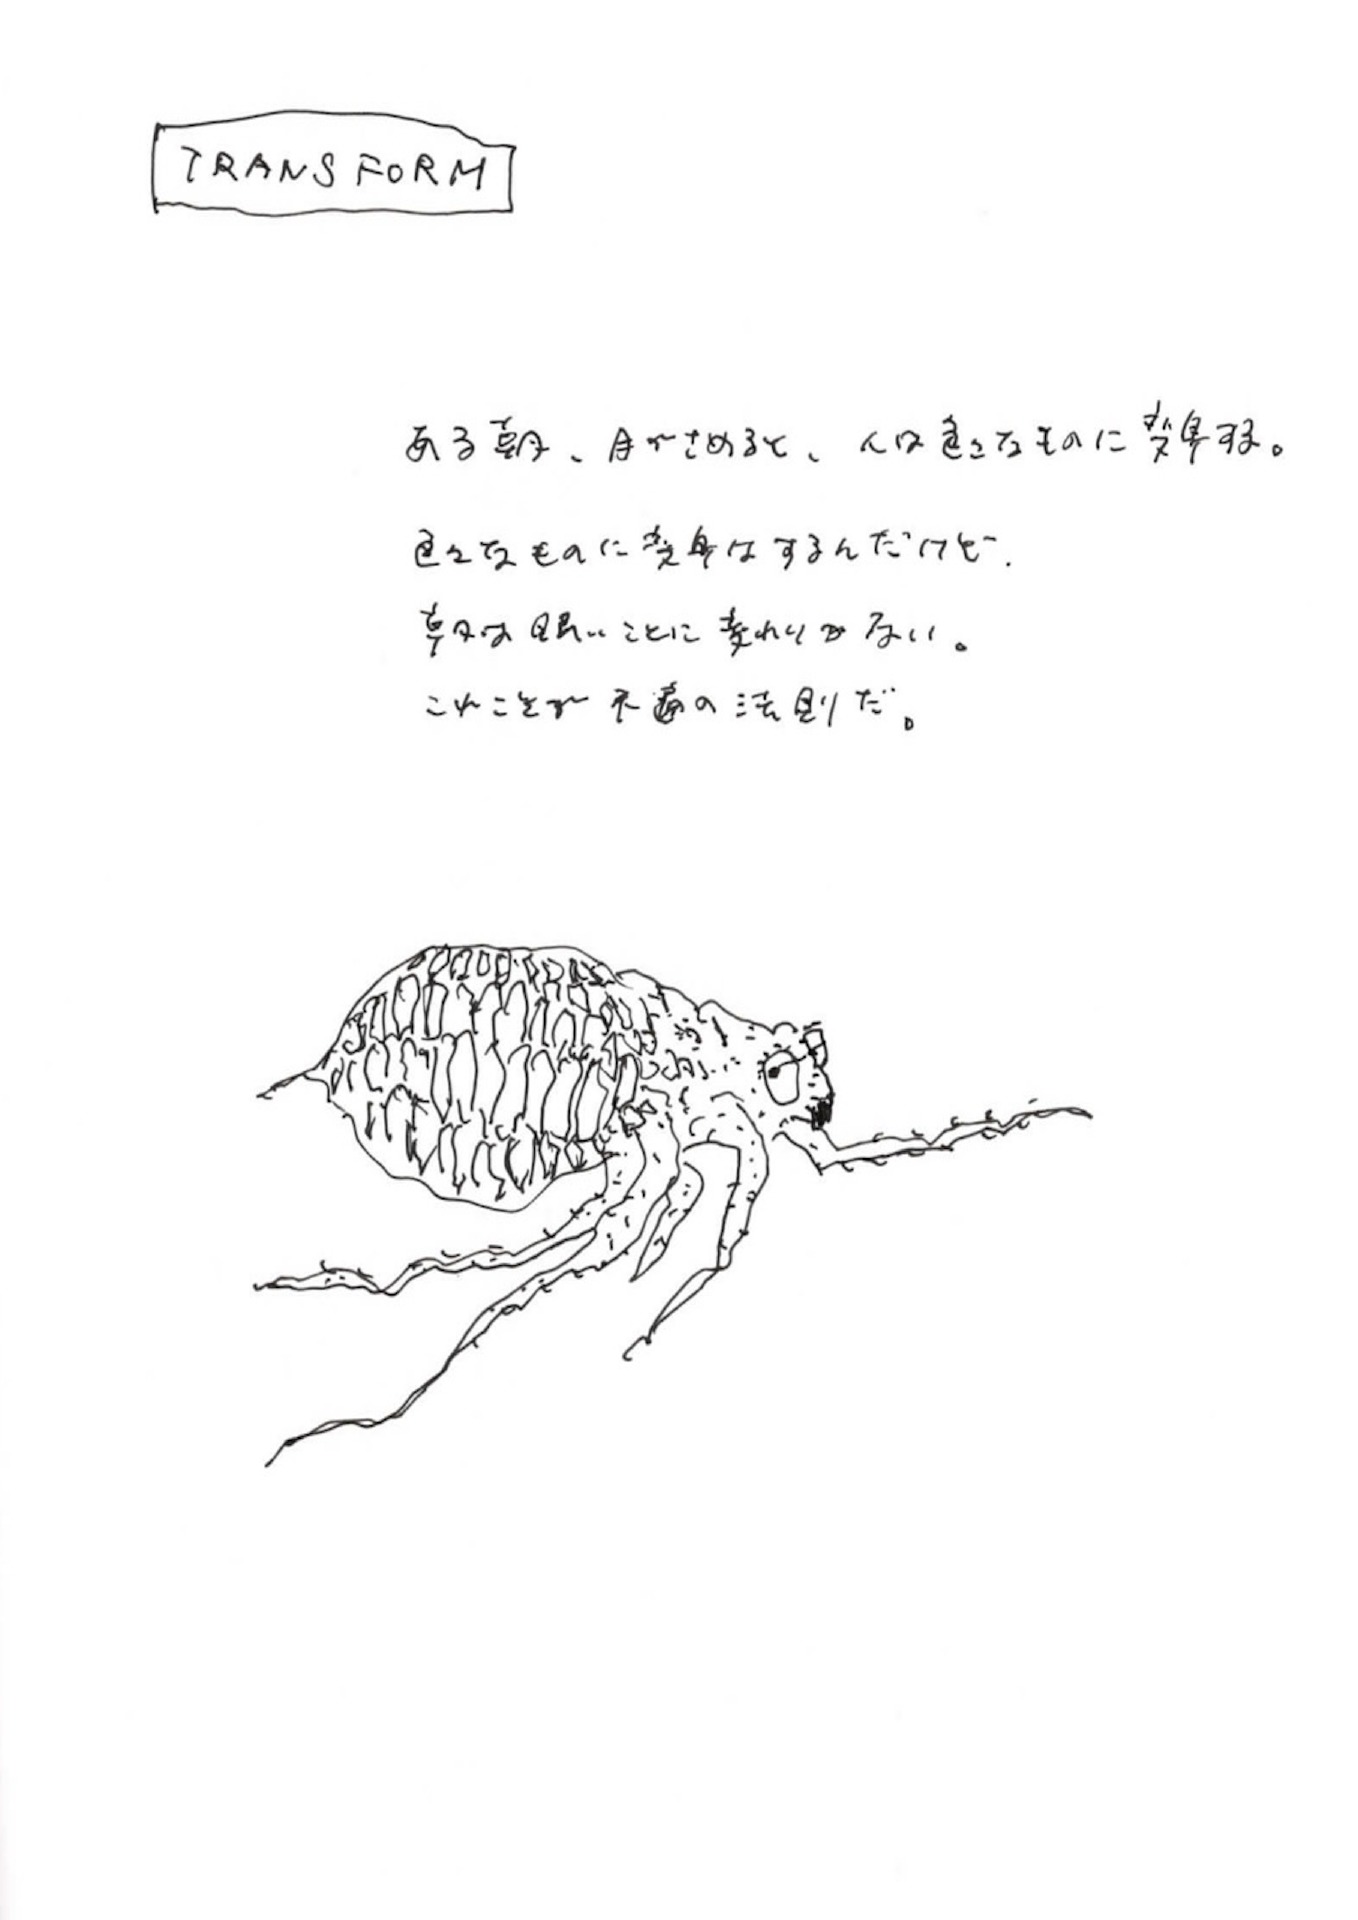 TRANSFORM
ある朝、目がさめると、人は色々なものに変身する。
色々なものに変身はするんだけど、
朝は眠いことに変わりがない。
これこそが不変の法則だ。